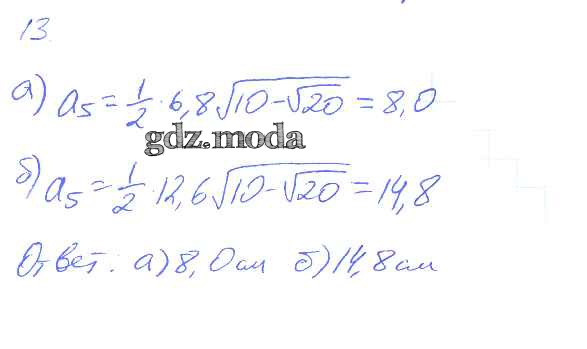 13.
а) a₅ = 1/2 · 6,8√(10-√20) = 8,0
gdz.moda
б) a₅ = 1/2 · 12,6√(10-√20) = 14,8
Ответ: а) 8,0 см б) 14,8 см